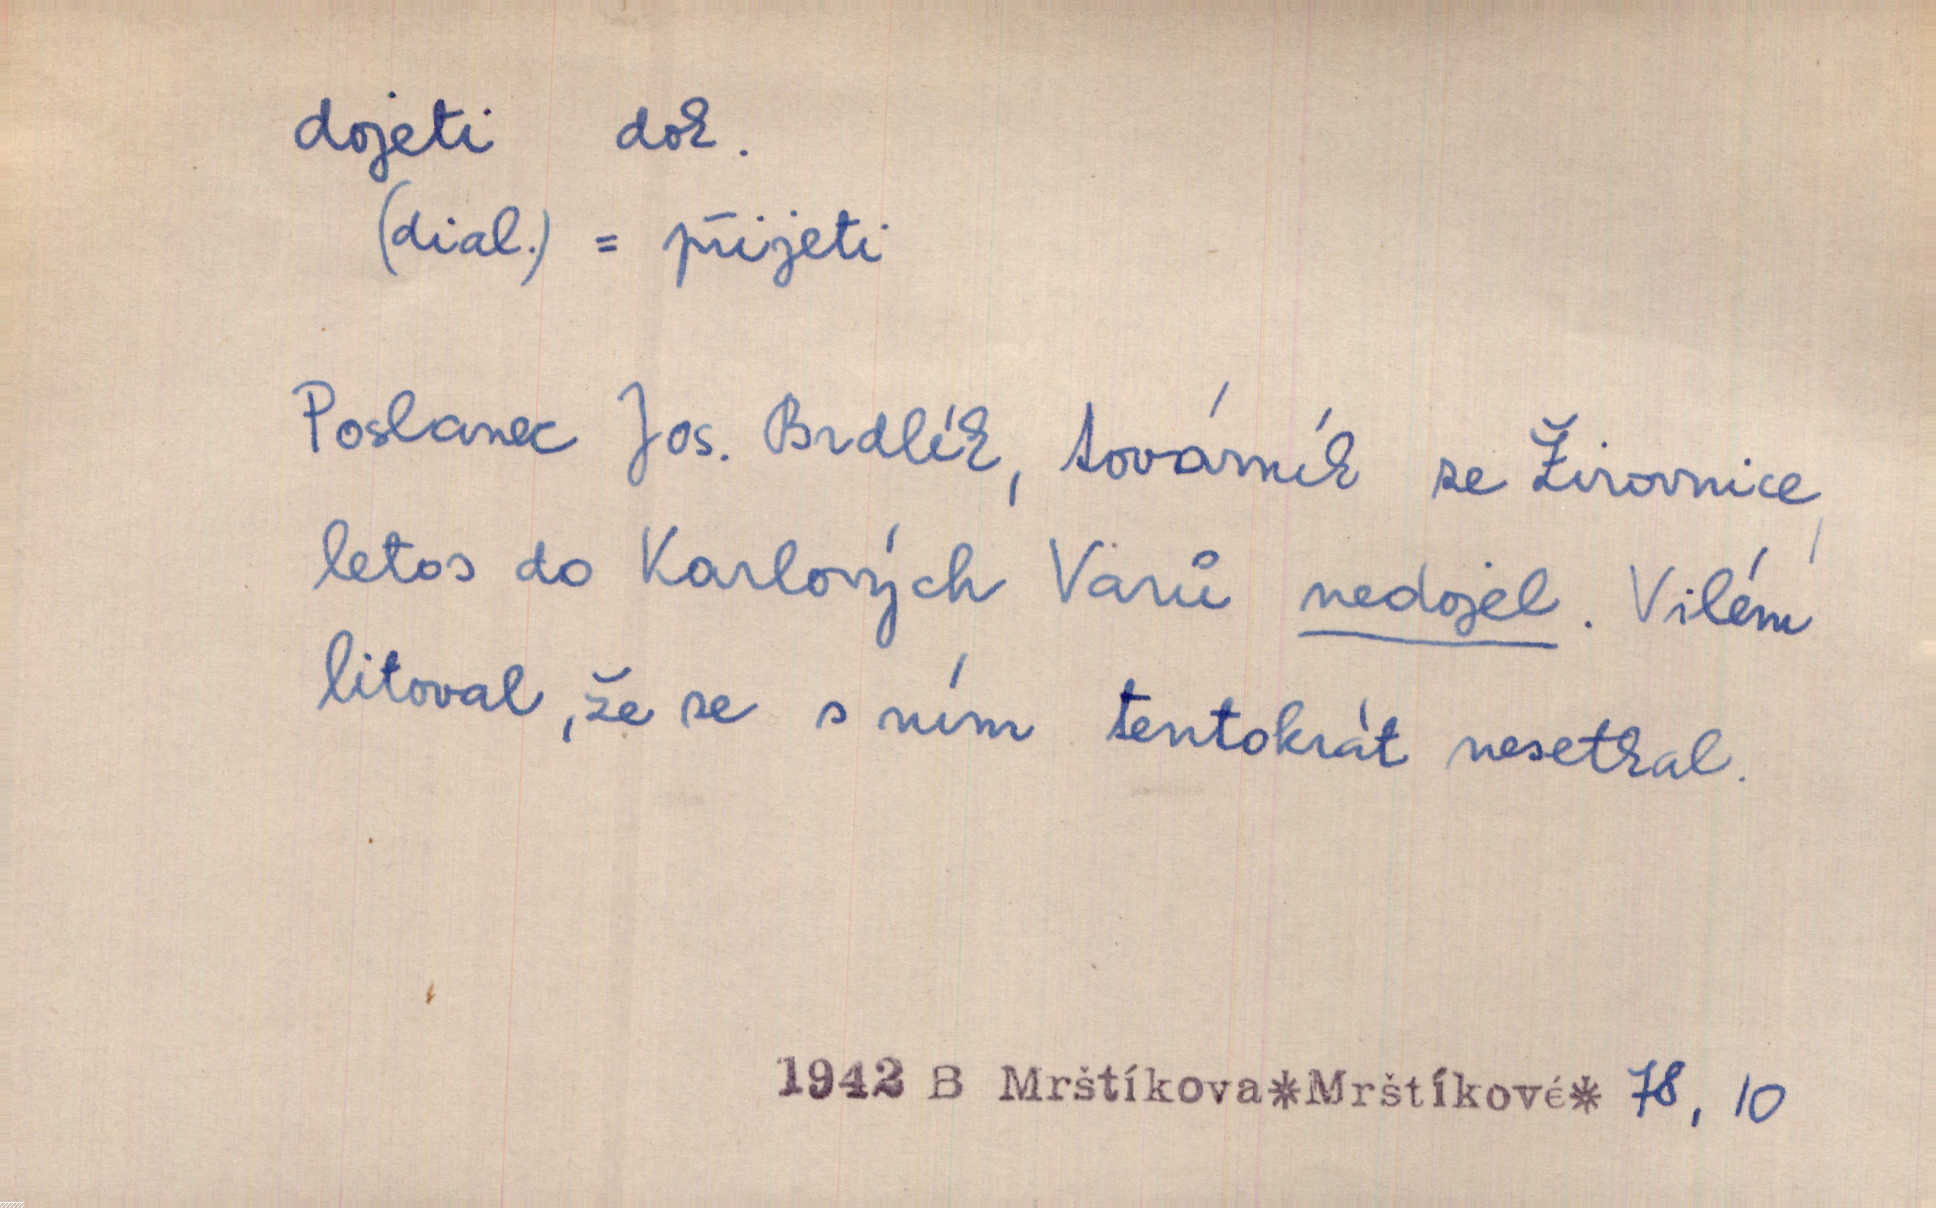 dojeti dok.
(dial.) = přijeti
Poslanec Jos. Brdlík, továrník ze Žirovnice,
letos do Karlových Varů nedojel. Vilém
litoval, že se s ním tentokrát nesetkal.
1942 B Mrštíkova*Mrštíkové* 78, 10